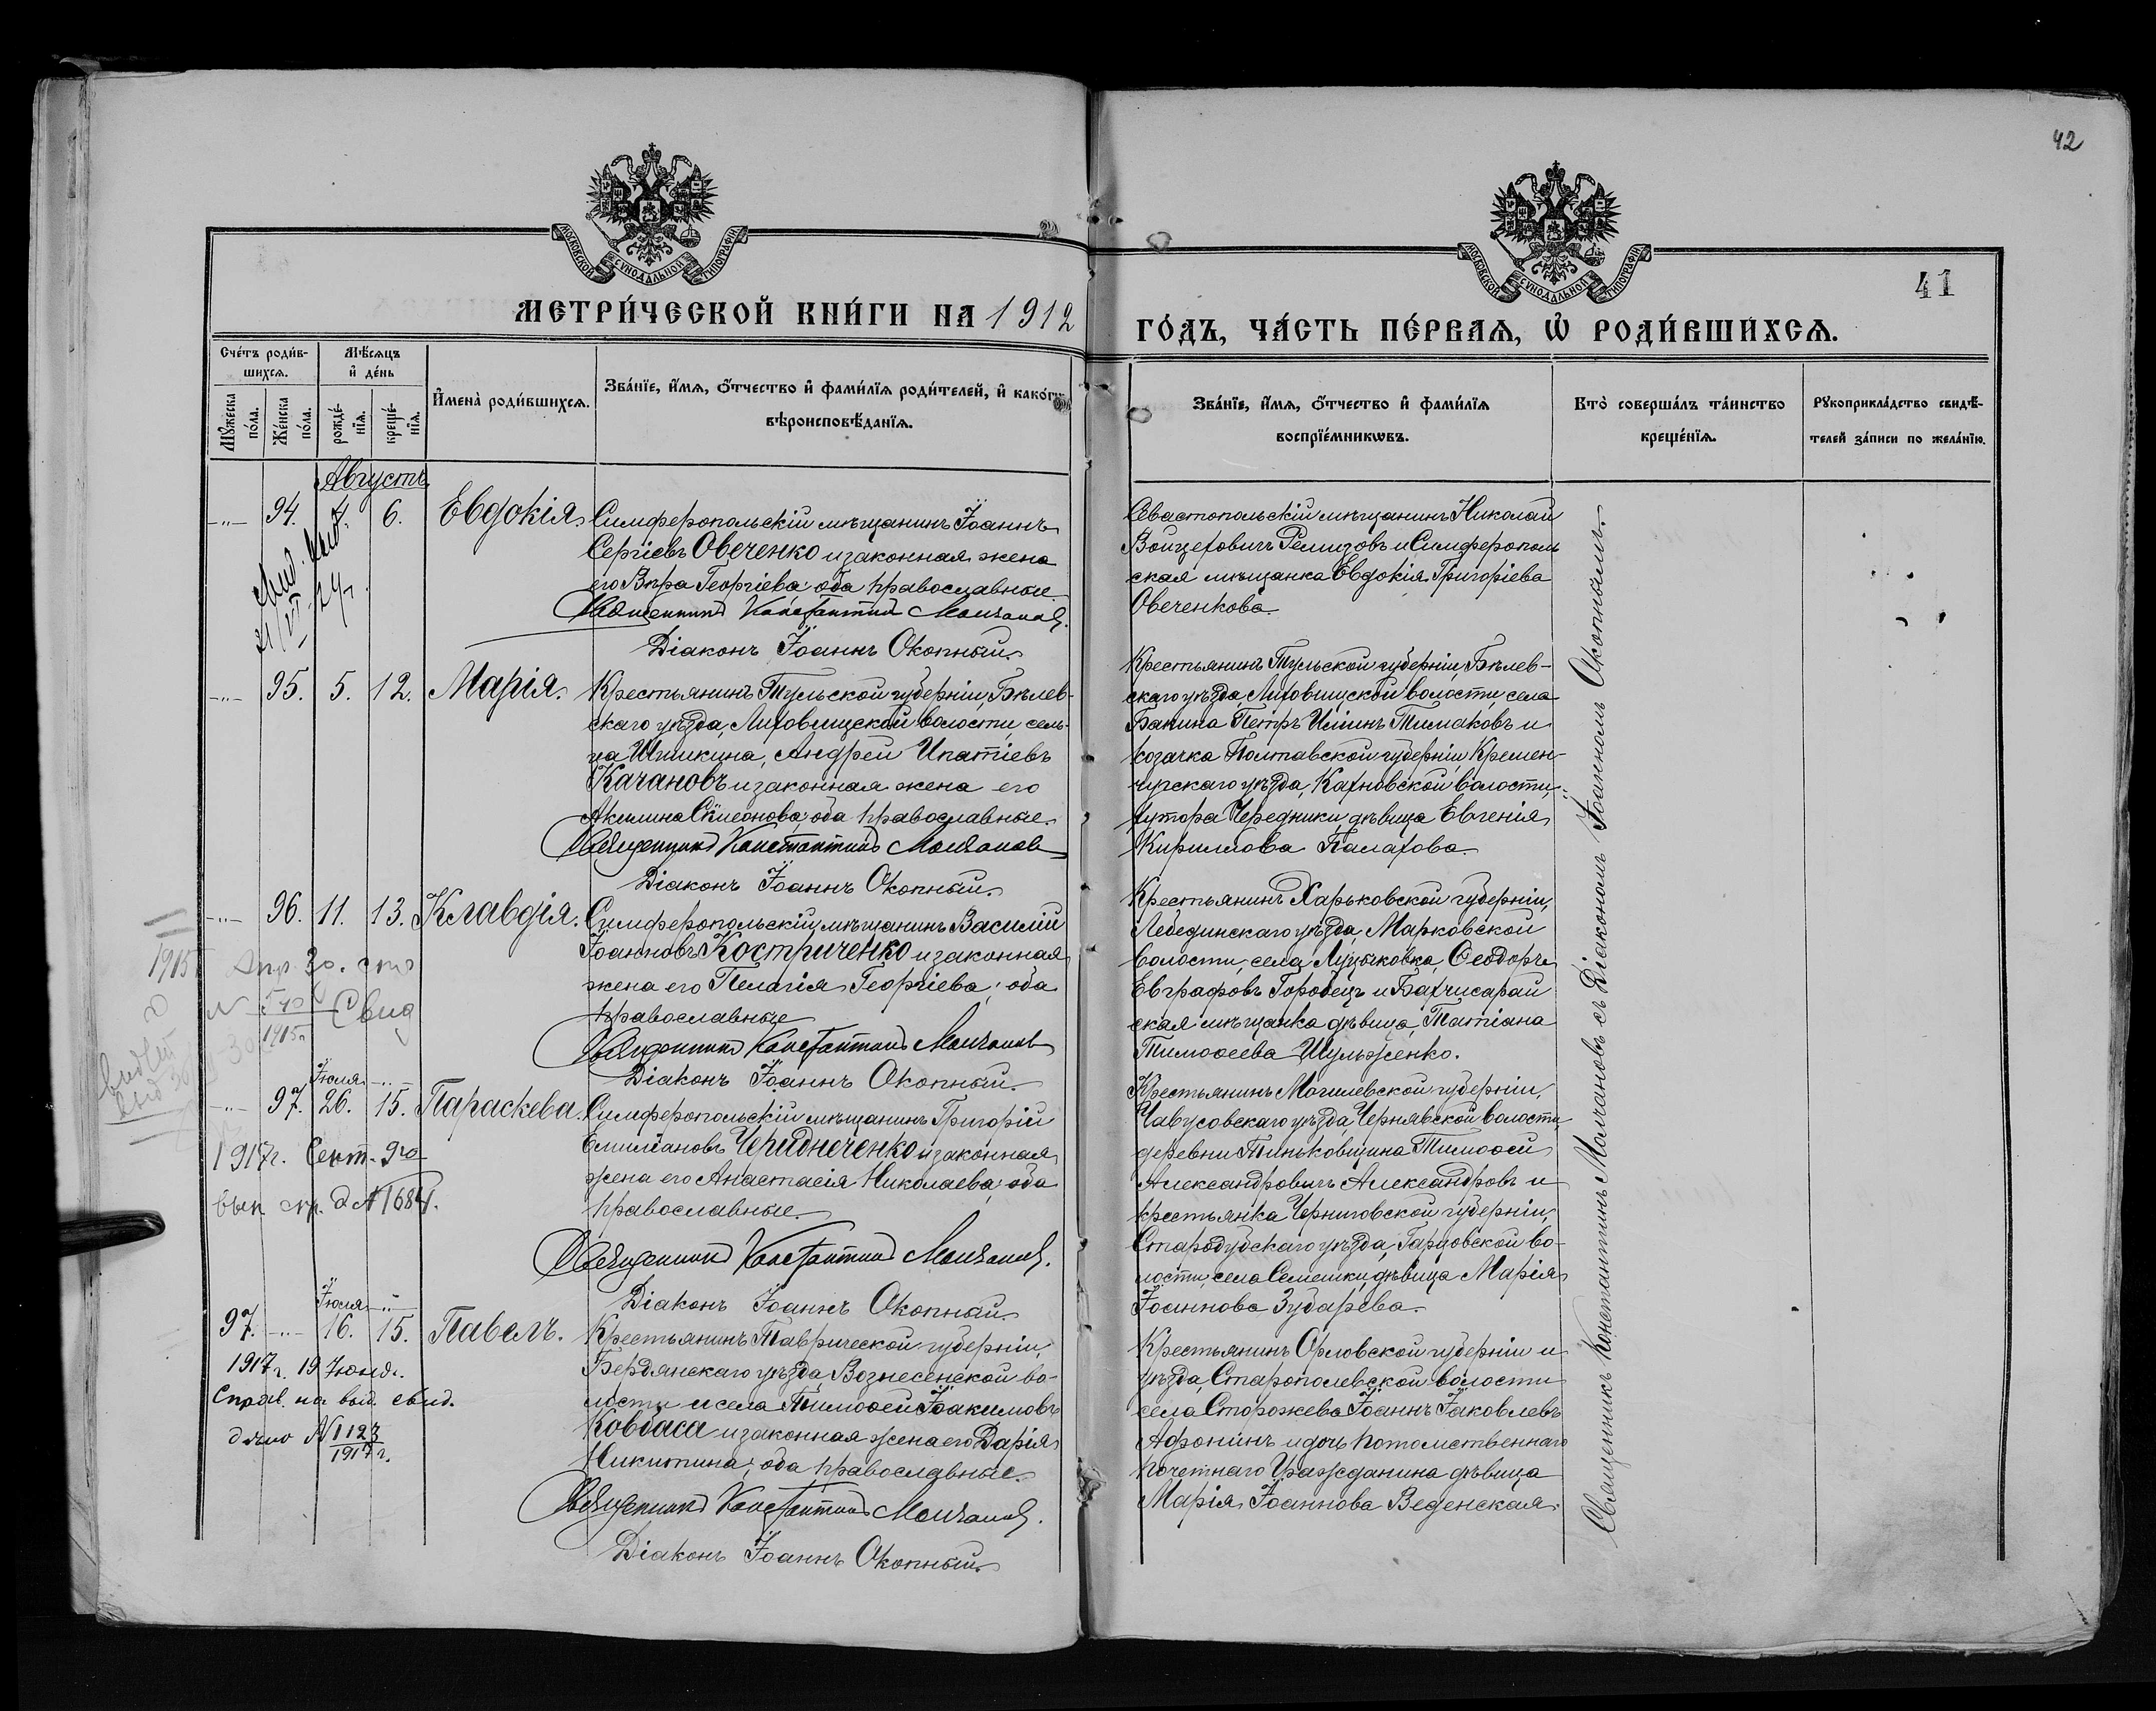 42
МОСКОВСКОЙ СѴНОДАЛЬНОЙ ТИПОГРАФІИ
МОСКОВСКОЙ СѴНОДАЛЬНОЙ ТИПОГРАФІИ
41
МЕТРИ́ЧЕСКОЙ КНИ́ГИ НА 1912
ГО́ДЪ, ЧА́СТЬ ПЕ́РВАѦ, Ѡ҆ РОДИ́ВШИХСѦ.
Сче́тъ роди́в-
шихсѧ.
Мѣ́сѧцъ
и҆ де́нь
Мꙋ́жеска
по́ла.
Же́нска
по́ла.
рожде́-
нїѧ.
креще́-
нїѧ.
И҆мена̀ роди́вшихсѧ.
Зва́нїе, и҆́мѧ, ѻ҆́тчество и҆ фами́лїѧ роди́телей, и҆ како́гѡ
вѣроисповѣ́данїѧ.
Зва́нїе, и҆́мѧ, ѻ҆́тчество и҆ фами́лїѧ
воспрїе́мникѡвъ.
Кто̀ соверша́лъ та́инство
креще́нїѧ.
Рꙋкоприкла́дство свидѣ́-
телей за́писи по жела́нїю.
Августъ
-"- 94. 4. 6. Евдокія.
Симферопольскій мѣщанинъ Іоаннъ
Сергіевъ Овеченко и законная жена
его Вѣра Георгіева; оба православные.
Священникъ Константинъ Молчановъ.
Діаконъ Іоаннъ Окопный.
Севастопольскій мѣщанинъ Николай
Войцеховичъ Ремизовъ и Симферополь
ская мѣщанка Евдокія Григоріева
Овеченкова.
-"- 95. 5. 12. Марія.
Крестьянинъ Тульской губерніи, Бѣлев-
скаго уѣзда, Литовищской волости, сель-
ца Шишкина, Андрей Ипатіевъ
Качановъ и законная жена его
Акилина Сѵмеонова; оба православные.
Священникъ Константинъ Молчановъ
Діаконъ Іоаннъ Окопный.
Крестьянинъ Тульской губерніи, Бѣлев-
скаго уѣзда, Литовищской волости, села
Бакина Петръ Иліинъ Тимаковъ и
козачка Полтавской губерніи, Кремен-
чугскаго уѣзда, Кахновской волости,
хутора Чередники, дѣвица Евгенія
Кириллова Палахова.
-"- 96. 11. 13. Клавдія.
Симферопольскій мѣщанинъ Василій
Іоанновъ Костриченко и законная
жена его Пелагія Георгіева; оба
православные
Священникъ Константинъ Молчановъ
Діаконъ Іоаннъ Окопный.
Крестьянинъ Харьковской губерніи,
Лебединскаго уѣзда, Марковской
волости, села Луцыковка, Ѳеодоръ
Евграфовъ Городецъ и Бахчисарай
ская мѣщанка дѣвица, Татіана
Тимоѳеева Шульженко.
1915
540
1915 г.
Свид
Іюля -"-
-"- 97. 26. 15. Параскева.
Симферопольскій мѣщанинъ Григорій
Емиліановъ Чередниченко и законная
жена его Анастасія Николаева; оба
православные.
Священникъ Константинъ Молчановъ.
Діаконъ Іоаннъ Окопный.
1917 г. Сент. 9го
вып. спр. д. № 1684.
Крестьянинъ Могилевской губерніи,
Чаусовскаго уѣзда, Чернявской волости
деревни Тиньковщина Тимоѳей
Александровичъ Александровъ и
крестьянка Черниговской губерніи,
Стародубскаго уѣзда, Гарцовской во-
лости, села Семешки, дѣвица Марія
Іоаннова Зубарева.
Іюля -"-
97. -"- 16. 15. Павелъ.
Крестьянинъ Таврической губерніи,
Бердянскаго уѣзда, Вознесенской во-
лости и села Тимоѳей Іоакимовъ
Ковбаса и законная жена его Дарія
Никитина; оба православные.
Священникъ Константинъ Молчановъ.
Діаконъ Іоаннъ Окопный.
1917 г. 19 Іюня.
Справ. на выд. свид.
дѣло № 1123
1917 г.
Крестьянинъ Орловской губерніи и
уѣзда, Старопольевской волости
села Сторожева Іоаннъ Іаковлевъ
Афонинъ и дочь потомственнаго
почетнаго гражданина дѣвица
Марія Іоаннова Веденская.
Священникъ Константинъ Молчановъ съ Діакономъ Іоанномъ Окопнымъ.